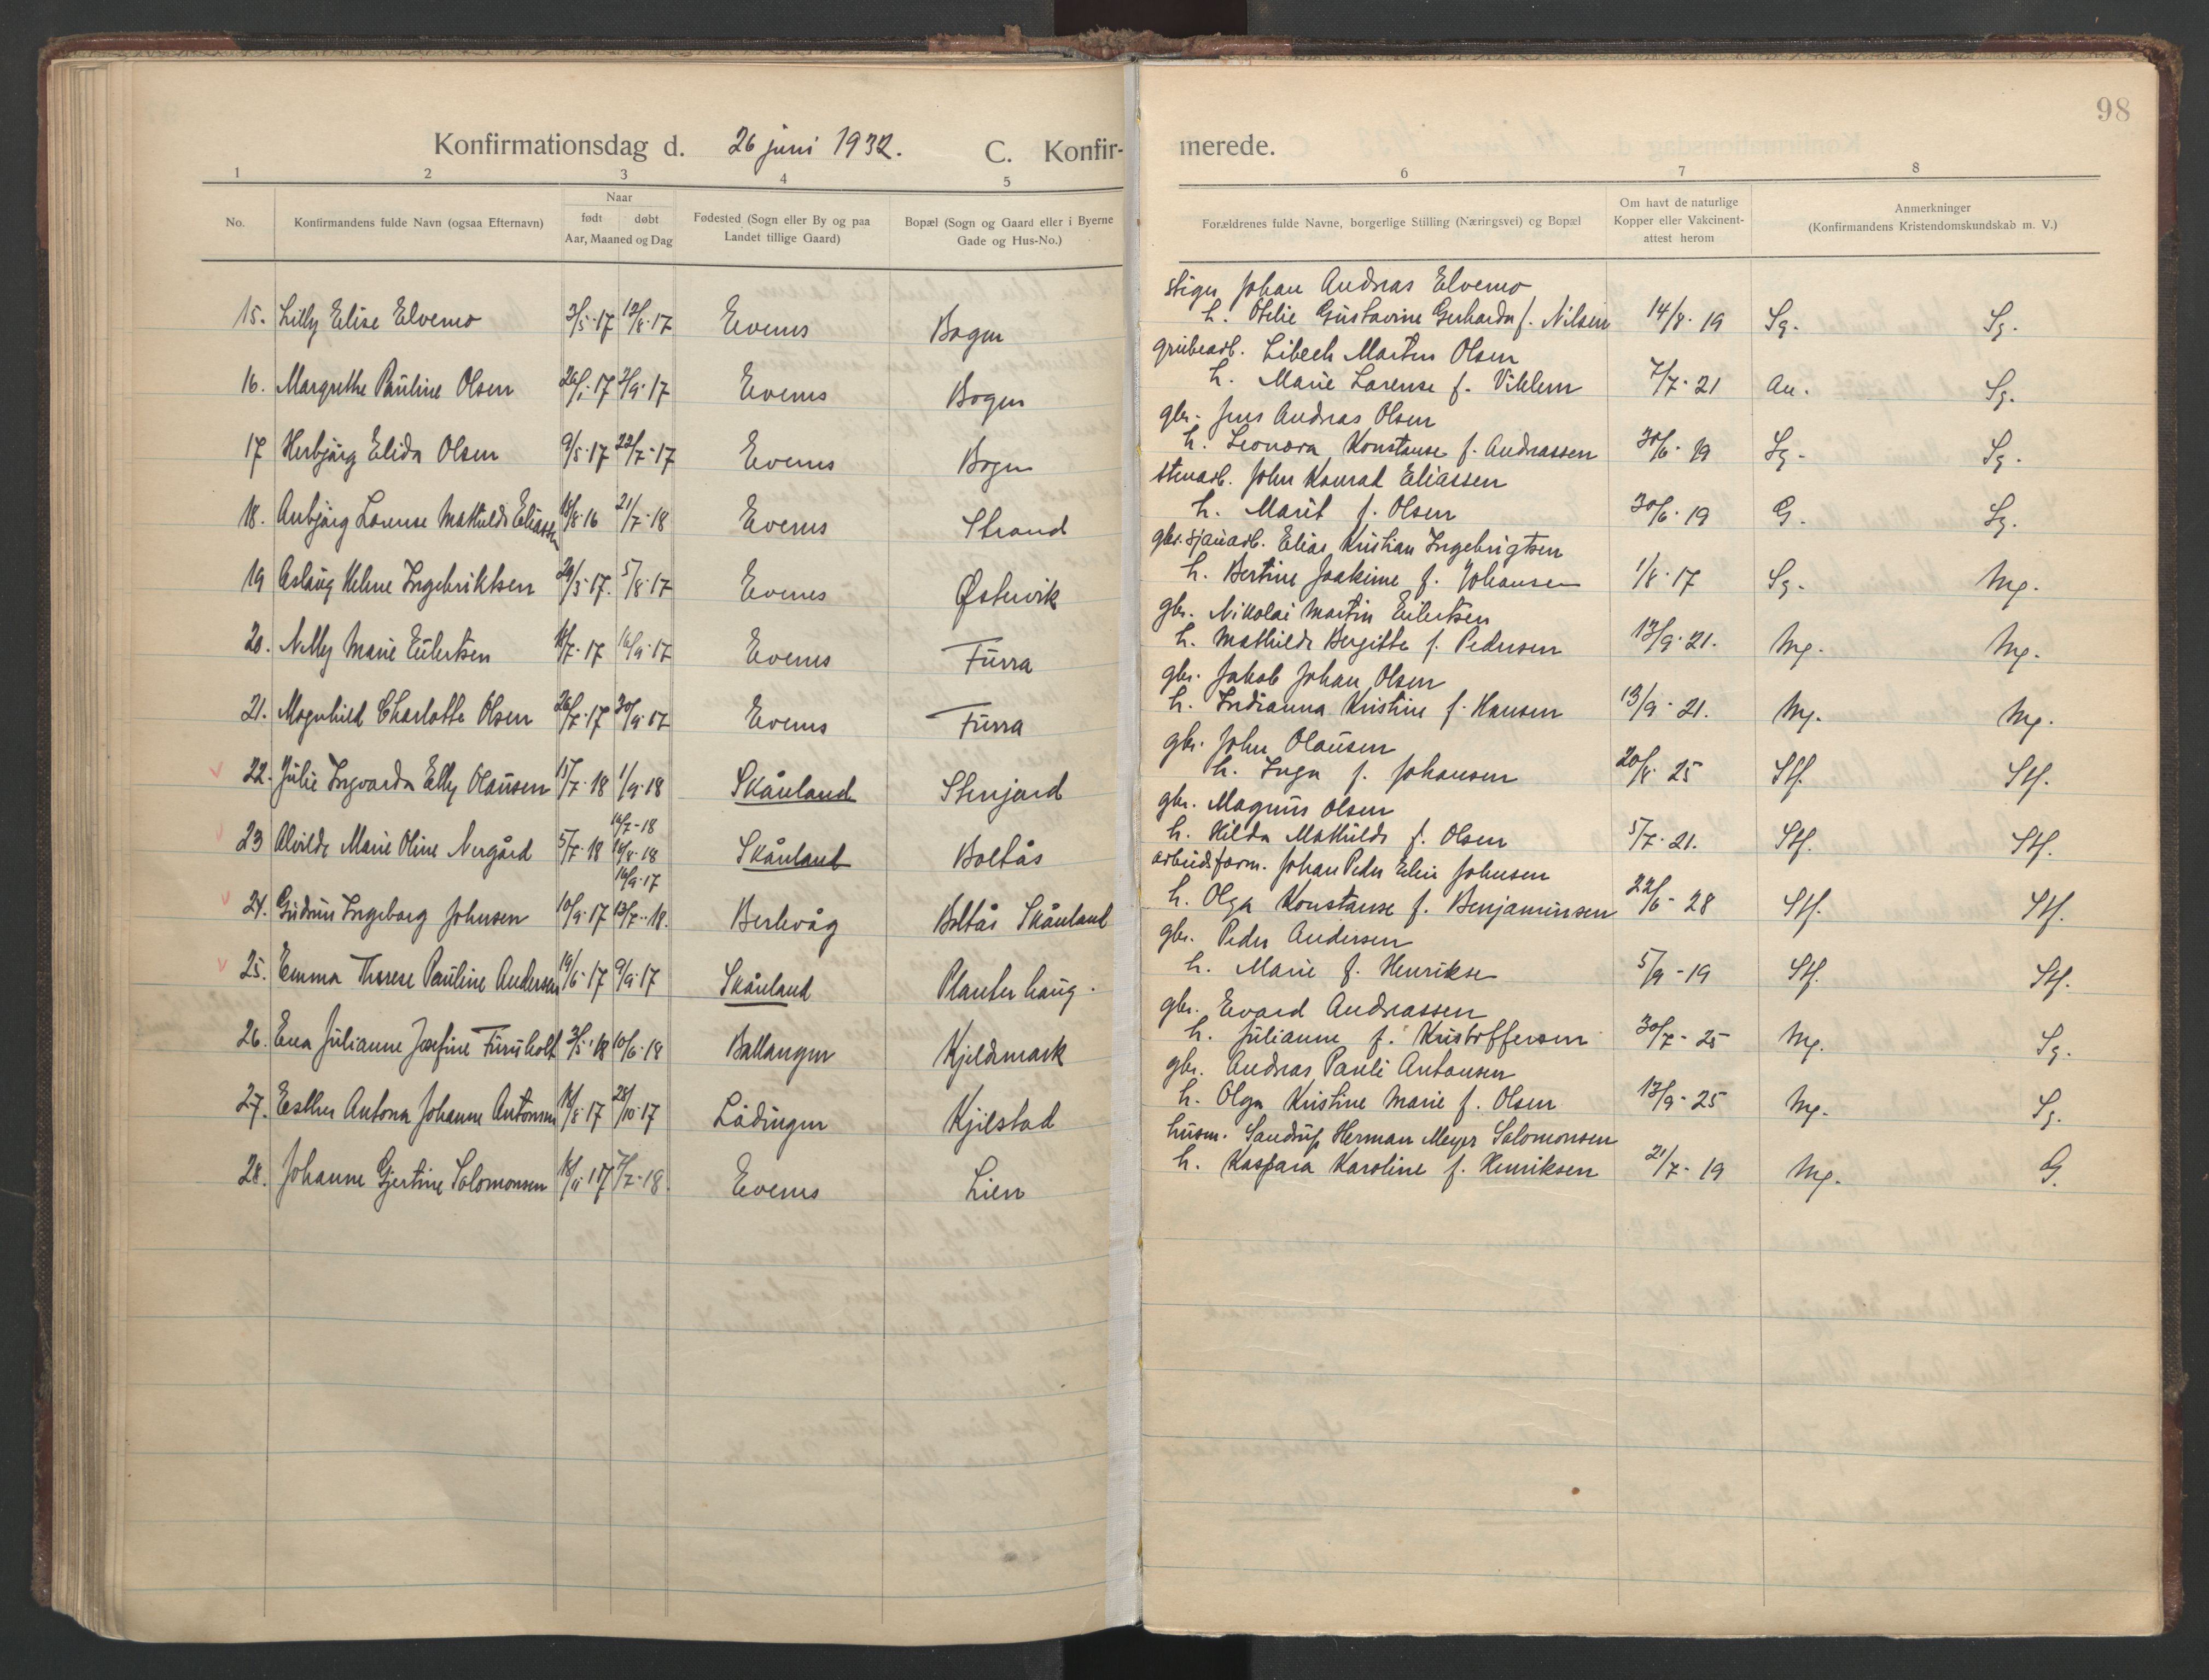 98
Konfirmationsdag d. 26 juni 1932. C. Konfir-
merede.
1 2 3 4 5
6 7 8
No.
Konfirmandens fulde Navn (ogsaa Efternavn)
Naar
født døbt
Aar, Maaned og Dag
Fødested (Sogn eller By og paa
Landet tillige Gaard)
Bopæl (Sogn og Gaard eller i Byerne
Gade og Hus-No.)
Forældrenes fulde Navne, borgerlige Stilling (Næringsvei) og Bopæl
Om havt de naturlige
Kopper eller Vakcinent-
attest herom
Anmerkninger
(Konfirmandens Kristendomskundskab m. V.)
stiger Johan Andreas Elvemo
15. Lilly Elise Elvemo 3/5-17 12/8-17 Evenes Bogen h. Otelie Gustavine Gerharda f. Nilsen 14/8-19 Sg. Sg.
grubearb. Libech Marten Olsen
16. Margrethe Pauline Olsen 17 2/9-17 Evenes Bogen h. Marie Larense f. Viklem 7/7-21 Sg.
gbr. Jens Andreas Olsen
17 Herbjørg Elida Olsen 9/5-17 22/7-17 Evenes Bogen h. Leonora Konstanse f. Andreassen 30/6-19 Sg. Sg.
stenarb. John Konrad Eliassen
18. Anbjørg Larense Mathilde Eliassen 18/8-16 21/7-18 Evenes Strand h. Marit f. Olsen 30/6-19 G. Sg.
gbr. sjauarb. Elias Kristian Ingebrigtsen
19 Aslaug Helene Ingebriktsen 29/3-17. 5/8-17 Evenes Østervik h. Bertine Joakime f. Johansen 1/8-17 Sg. Mg.
gbr. Nikolai Martin Eilertsen
20. Nelly Marie Eilertsen 17 16/9-17 Evenes Furra h. Mathilde Bergitte f. Pedersen 13/9-21. Mg. Mg.
gbr. Jakob Johan Olsen
21. Magnhild Charlotte Olsen 26/7-17 30/9-17 Evenes Furra h. Indianna Kristine f. Hansen 13/9-21. Mg. Mg.
gbr. John Olausen
22. Julie Ingvarda Elly Olausen 15/7-18 1/9-18 Skånland Stenjord h. Inga f. Johansen 20/8-25 Stf. Stf.
gbr. Magnus Olsen
14/7-18
23 Alvilde Marie Oline Nergård 5/7-18 18/8-18 Skånland Boltås h. Hilda Mathilde f. Olsen 5/7-21. Stf. Stf.
arbeidsform. Johan Peder Elie Johnsen
16/9-17
24. Gudrun Ingeborg Johnsen 10/9-17 13/7-18. Berlevåg Boltås Skånland h. Olga Konstanse f. Benjaminsen 22/6-28 Stf. Stf.
gbr. Peder Andersen
25. Emma Therese Pauline Andersen 19/6-17 9/9-17 Skånland Planterhaug. h. Marie f. Henriksen 5/9-19 Stf. Stf.
gbr. Evard Andreassen
26. Ena Julianne Josefine Furuholt 3/5-18 10/6-18 Ballangen Kjeldmark h. Julianne f. Kristoffersen 30/7-25 Mg. Sg.
gbr. Andreas Pauli Antonsen
27. Esther Antona Johanne Antonsen 18/8-17 28/10-17 Lødingen Kjilstad h. Olga Kristine Marie f. Olsen 13/9-25 Mg. Sg.
husm. Sandrup Herman Meyer Salomonsen
28. Johanne Gjertine Salomonsen 17 7/7-18. Evenes Lien h. Kaspara Karoline f. Henriksen 21/7-19 Mg. G.